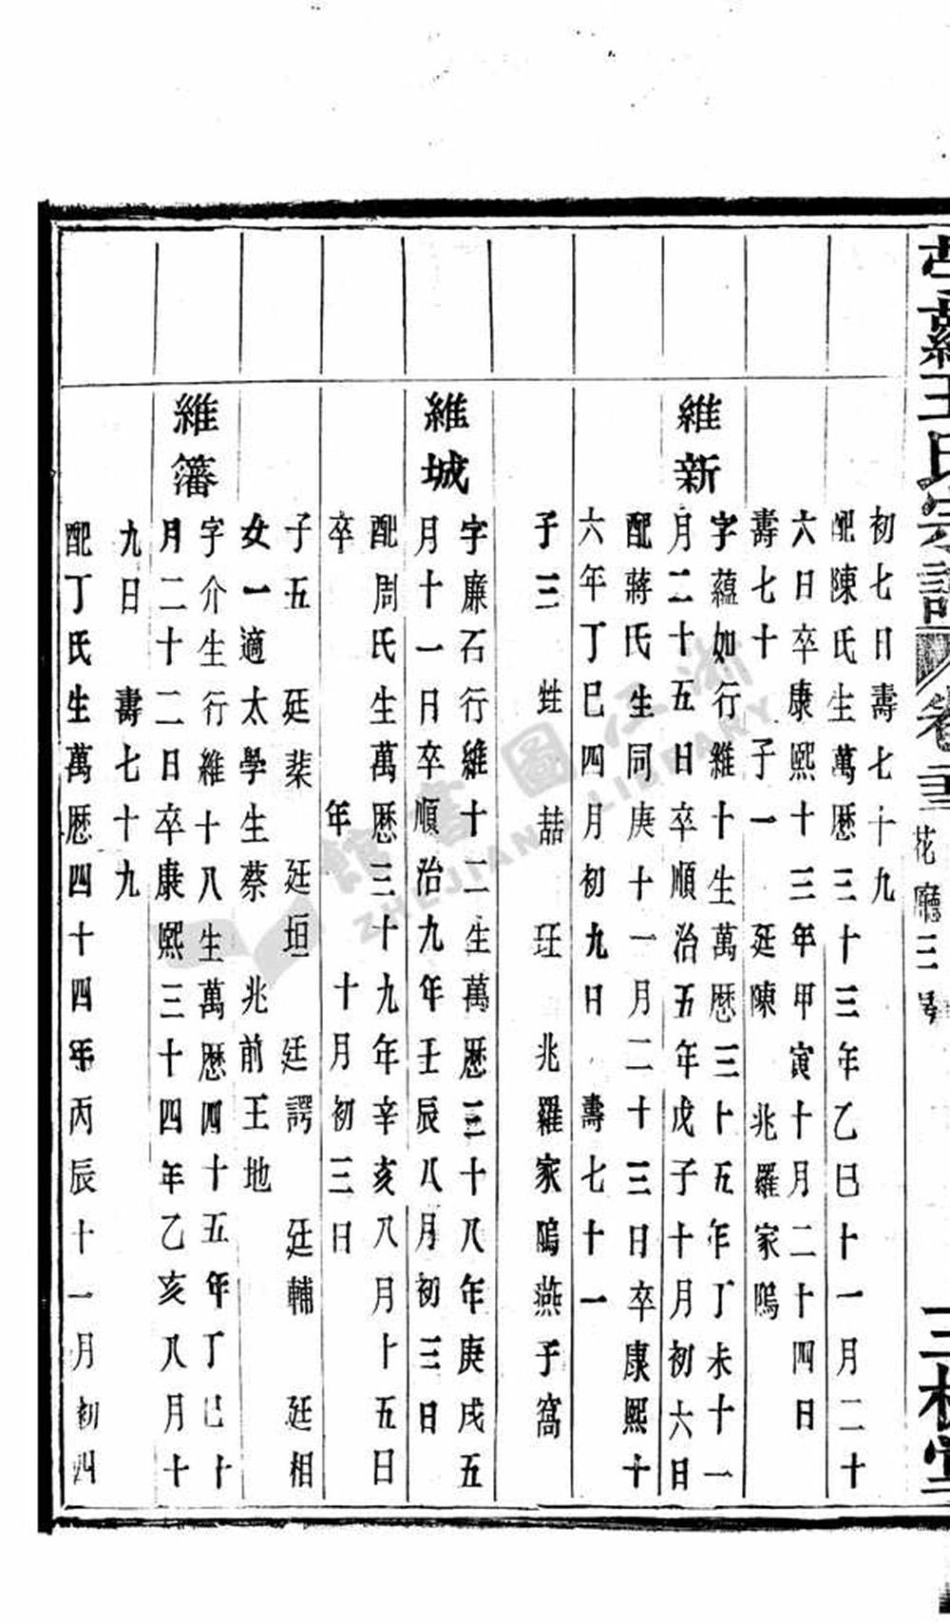 蘿王氏宗譜 卷
花廳三号
三槐堂
初七日壽七十九
配陳氏生萬歷三十三年乙巳十一月二十
六日卒康熙十三年甲寅十月二十四日
壽七十 子一 廷陳 兆羅家鳴
維新
字蘊如行維十生萬歷三十五年丁未十一
月二十五日卒順治五年戊子十月初六日
配蔣氏生同庚十一月二十三日卒康熙十
六年丁巳四月初九日 壽七十一
子三 甡 喆 玨 兆羅家鳴燕子窩
維城
字廉石行維十二生萬歷三十八年庚戌五
月十一日卒順治九年壬辰八月初三日
配周氏生萬歷三十九年辛亥八月十五日
卒 年 十月初三日
子五 廷棐 廷垣 廷諤 廷輔 廷相
女一適太學生蔡 兆前王地
維籓
字介生行維十八生萬歷四十五年丁巳十
月二十二日卒康熙三十四年乙亥八月十
九日 壽七十九
配丁氏生萬歷四十四年丙辰十一月初四
浙江圖書館
ZHEJIANG LIBRARY